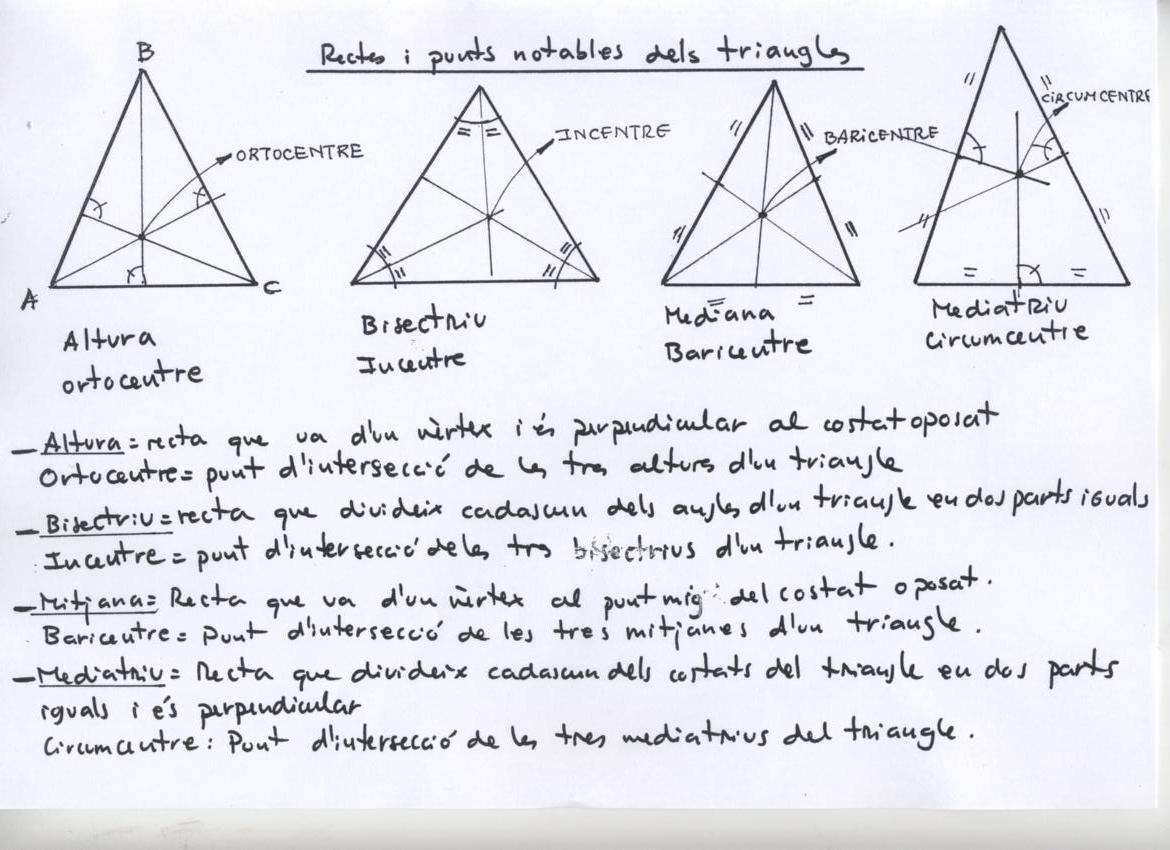 Rectes i punts notables dels triangles
B
ORTOCENTRE
A
C
INCENTRE
BARICENTRE
CIRCUMCENTRE
Altura
ortocentre
Bisectriu
Incentre
Mediana
Baricentre
Mediatriu
Circumcentre
- Altura = recta que va d'un vèrtex i és perpendicular al costat oposat
Ortocentre = punt d'intersecció de les tres altures d'un triangle
- Bisectriu = recta que divideix cadascun dels angles d'un triangle en dos parts iguals
Incentre = punt d'intersecció de les tres bisectrius d'un triangle.
- Mitjana = Recta que va d'un vèrtex al punt mig del costat oposat.
Baricentre = Punt d'intersecció de les tres mitjanes d'un triangle.
- Mediatriu = Recta que divideix cadascun dels costats del triangle en dos parts
iguals i és perpendicular
Circumcentre : Punt d'intersecció de les tres mediatrius del triangle.